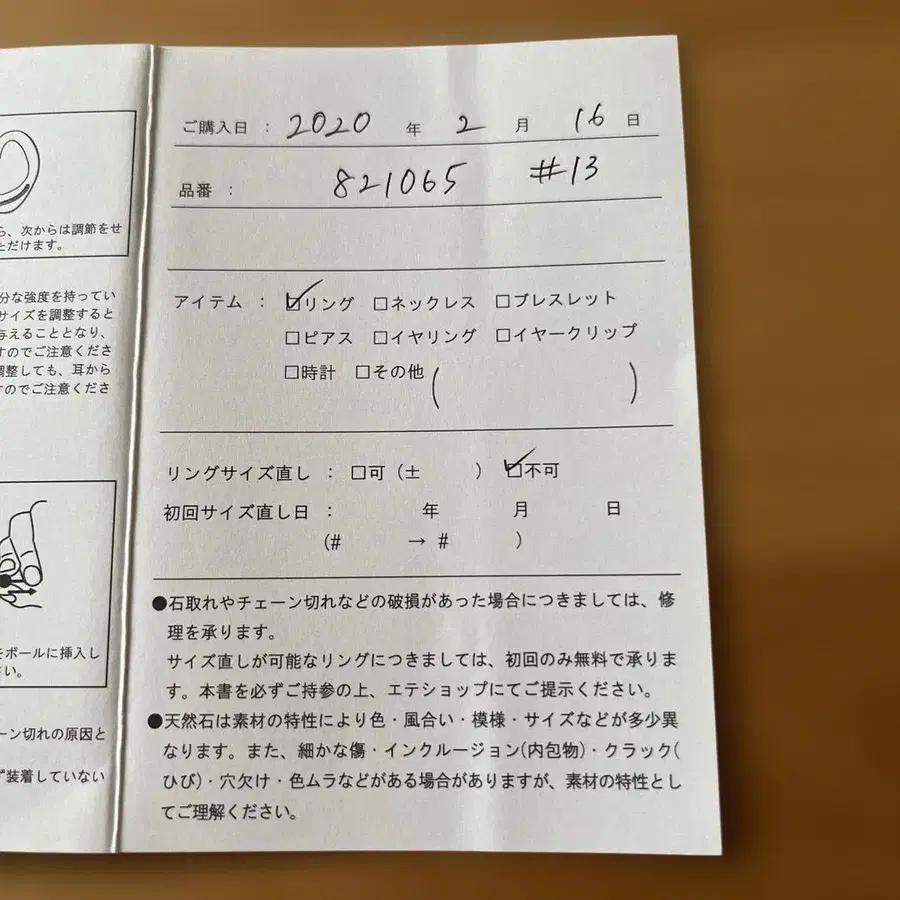 ら、次からは調節をせ
ただけます。
分な強度を持ってい
サイズを調整すると
与えることとなり、
すのでご注意くださ
調整しても、耳から
すのでご注意くださ
をポールに挿入し
い。
ーン切れの原因と
ず装着していない
ご購入日 : 2020 年 2 月 16 日
品番 : 821065 #13
アイテム : ☑リング □ネックレス □ブレスレット
□ピアス □イヤリング □イヤークリップ
□時計 □その他 ( )
リングサイズ直し : □可 (± ) ☑不可
初回サイズ直し日 : 年 月 日
(# → # )
●石取れやチェーン切れなどの破損があった場合につきましては、修
理を承ります。
サイズ直しが可能なリングにつきましては、初回のみ無料で承りま
す。本書を必ずご持参の上、エテショップにてご提示ください。
●天然石は素材の特性により色・風合い・模様・サイズなどが多少異
なります。また、細かな傷・インクルージョン(内包物)・クラック(
ひび)・穴欠け・色ムラなどがある場合がありますが、素材の特性とし
てご理解ください。